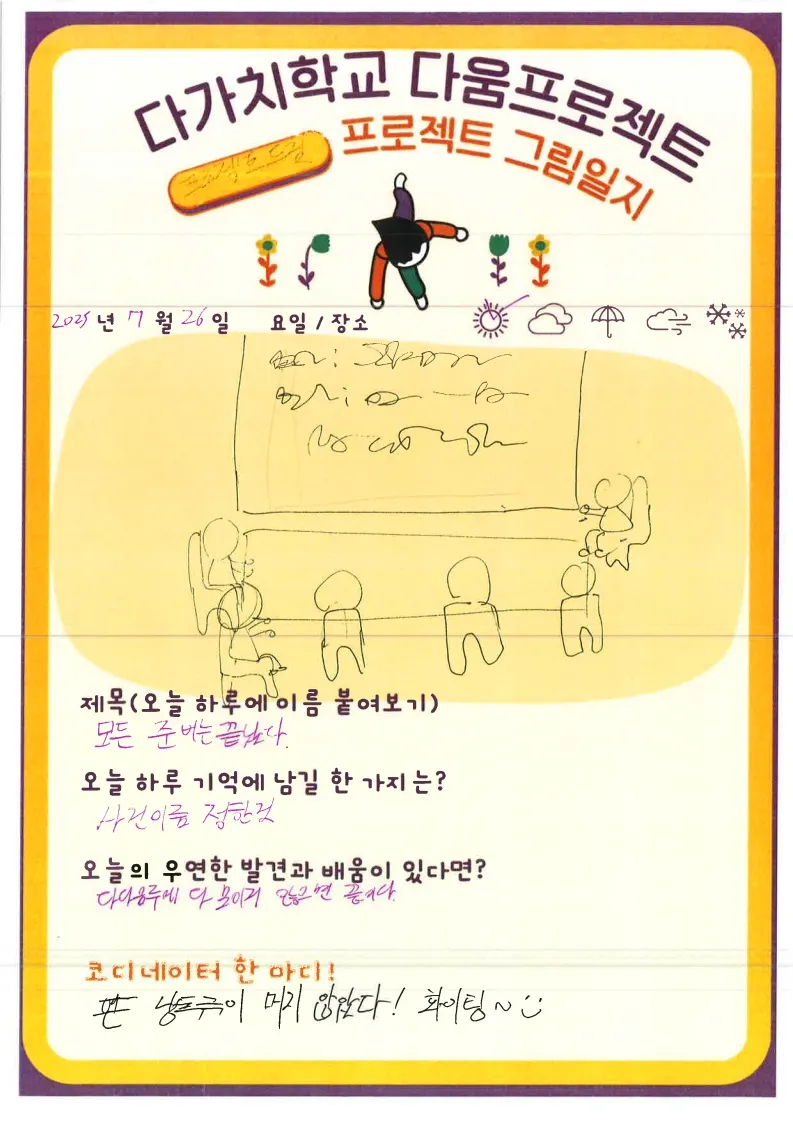 다가치학교 다움프로젝트
프로젝트 그림일지
2025 년 7 월 26 일 요일 / 장소
제목(오늘 하루에 이름 붙여보기)
모든 준비는 끝났다.
오늘 하루 기억에 남길 한 가지는?
사건이름 정한것
오늘의 우연한 발견과 배움이 있다면?
다 모이지 않으면 끝이다.
코디네이터 한 마디!
머지 않았다! 화이팅~